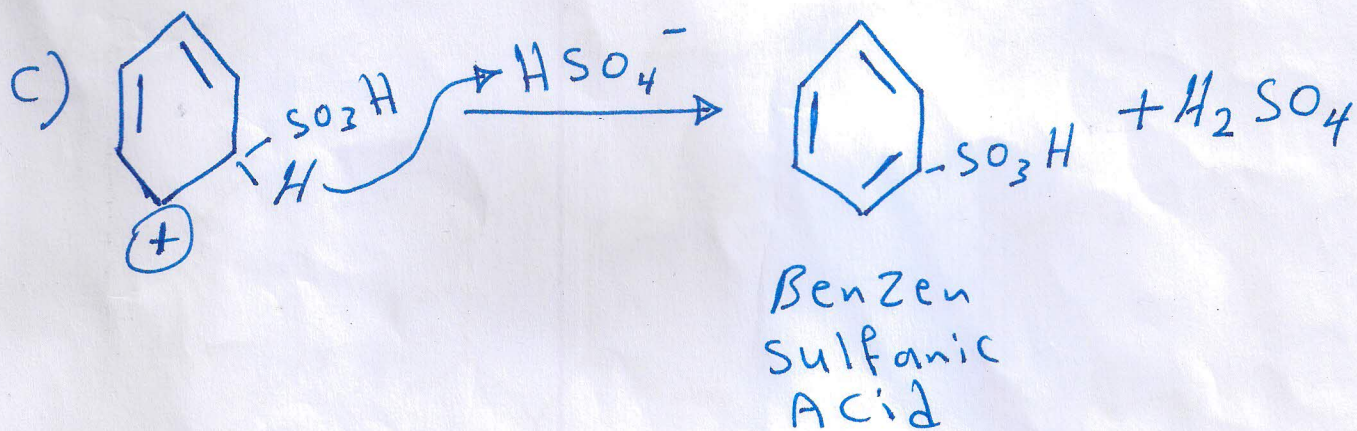 C) SO3H H + HSO4- SO3H + H2SO4
Benzen
Sulfanic
Acid